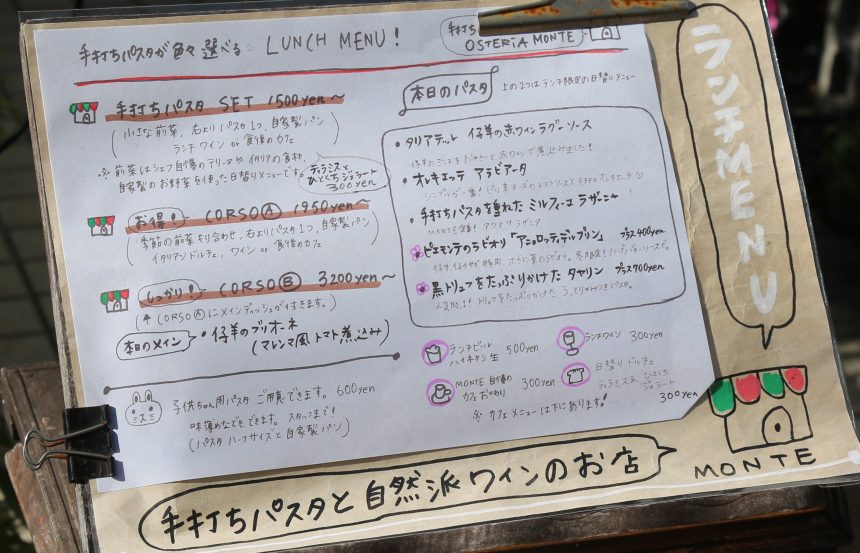 手打ちパスタが色々選べる LUNCH MENU!
OSTERIA MONTE
手打ちパスタ SET 1500yen〜
(小さな前菜、右よりパスタ1つ、自家製パン
ランチワイン or 食後のカフェ)
※前菜はシェフ自慢のテリーヌや、イタリアの食材、
自家製のお野菜を使った日替りメニューです。
ティラミスと
ひとくちジェラート
300yen
お得! CORSO Ⓐ 1950yen〜
(季節の前菜もり合わせ、右よりパスタ1つ、自家製パン
イタリアンドルチェ、ワイン or 食後のカフェ)
しっかり! CORSO Ⓑ 3200yen〜
(↑ CORSO Ⓐ にメインディッシュが付きます。)
本日のメイン ・仔羊のブリオーネ
(マレンマ風トマト煮込み)
子供ちゃん用パスタ ご用意できます。 600yen
味薄めなどもできます。スタッフまで!
(パスタ ハーフサイズと自家製パン)
本日のパスタ 上の2つはランチ限定の日替りメニュー
・タリアテッレ 仔羊の赤ワインラグーソース
・オレキエッテ アラビアータ
・手打ちパスタを重ねた ミルフィーユ ラザーニャ
MONTE定番!
ピエモンテのラビオリ「アニョロッティデルプリン」 プラス400yen
黒トリュフをたっぷりかけた タヤリン プラス700yen
人気No.1! トリュフをたっぷりかけた
ランチビール
ハイネケン生 500yen
ランチワイン 300yen
MONTE自慢の
カフェおかわり 300yen
日替りドルチェ
ティラミス& ひとくち
ジェラート
300yen
※カフェメニューは下にあります!
ランチMENU
MONTE
手打ちパスタと自然派ワインのお店